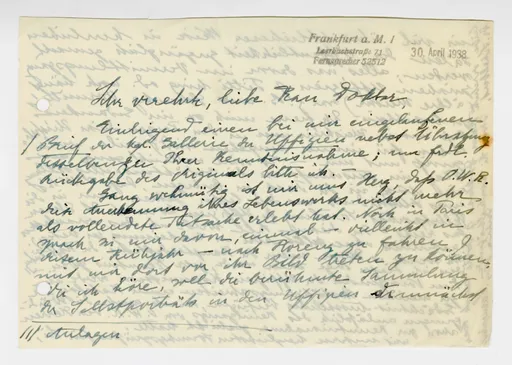 Frankfurt a. M. 1
Leerbachstraße 71
Fernsprecher 52512
30. April 1938
Sehr verehrte, liebe Frau Doktor,
Einliegend einen bei mir eingelaufenen
1/ Brief der kgl. Gallerie der Uffizien nebst Übersetzung
desselben zu Ihrer Kenntnisnahme; um
Rückgabe des Originals bitte ich. —
Ganz wehmütig ist mir ums Herz, daß O.W.R.
die Anerkennung ihres Lebenswerks nicht mehr
als vollendete Tatsache erlebt hat. Noch in Paris
sprach sie mir davon, einmal — vielleicht in
diesem Frühjahr — nach Florenz zu fahren
mit mir dort vor ihr Bild treten zu können.
Wie ich höre, soll die berühmte Sammlung
der Selbstporträts in den Uffizien demnächst
Anlagen